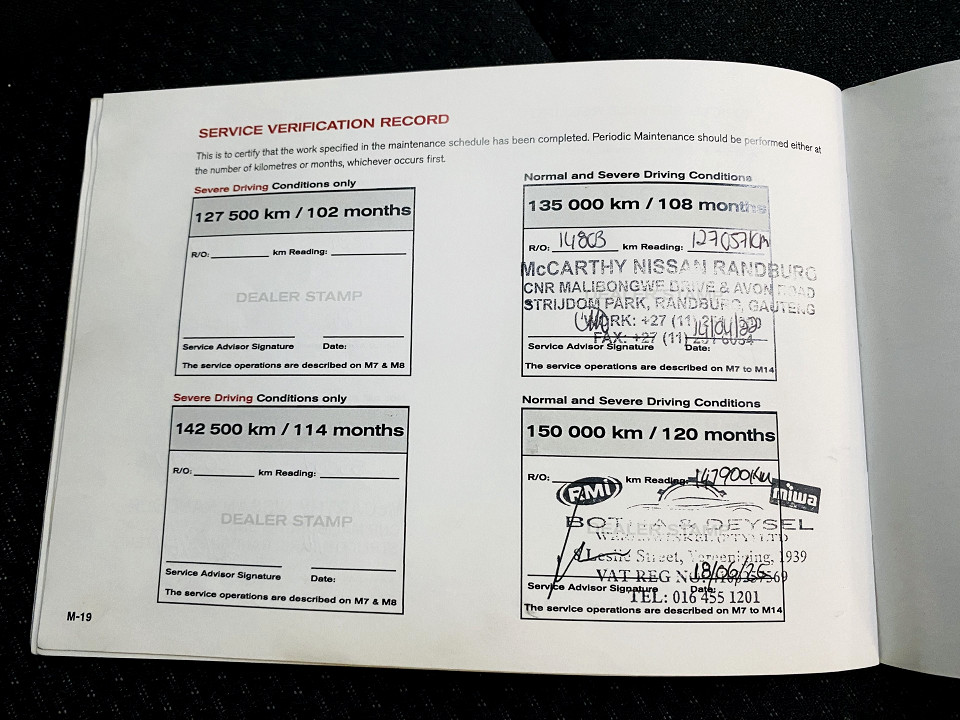 SERVICE VERIFICATION RECORD
This is to certify that the work specified in the maintenance schedule has been completed. Periodic Maintenance should be performed either at
the number of kilometres or months, whichever occurs first.
Severe Driving Conditions only
127 500 km / 102 months
R/O: km Reading:
DEALER STAMP
Service Advisor Signature Date:
The service operations are described on M7 & M8
Normal and Severe Driving Conditions
135 000 km / 108 months
R/O: 14803 km Reading: 127057km
McCARTHY NISSAN RANDBURG
CNR MALIBONGWE DRIVE & AVON ROAD
STRIJDOM PARK, RANDBURG, GAUTENG
WORK: +27 (11)
FAX: +27 (11)
Service Advisor Signature Date:
The service operations are described on M7 to M14
Severe Driving Conditions only
142 500 km / 114 months
R/O: km Reading:
DEALER STAMP
Service Advisor Signature Date:
The service operations are described on M7 & M8
Normal and Severe Driving Conditions
150 000 km / 120 months
R/O: km Reading: 147900km
RMI
miwa
BOTHA & DEYSEL
DEALER STAMP
8 Leslie Street, Vereeniging, 1939
VAT REG NO:
18/06/26
Service Advisor Signature Date:
TEL: 016 455 1201
The service operations are described on M7 to M14
M-19